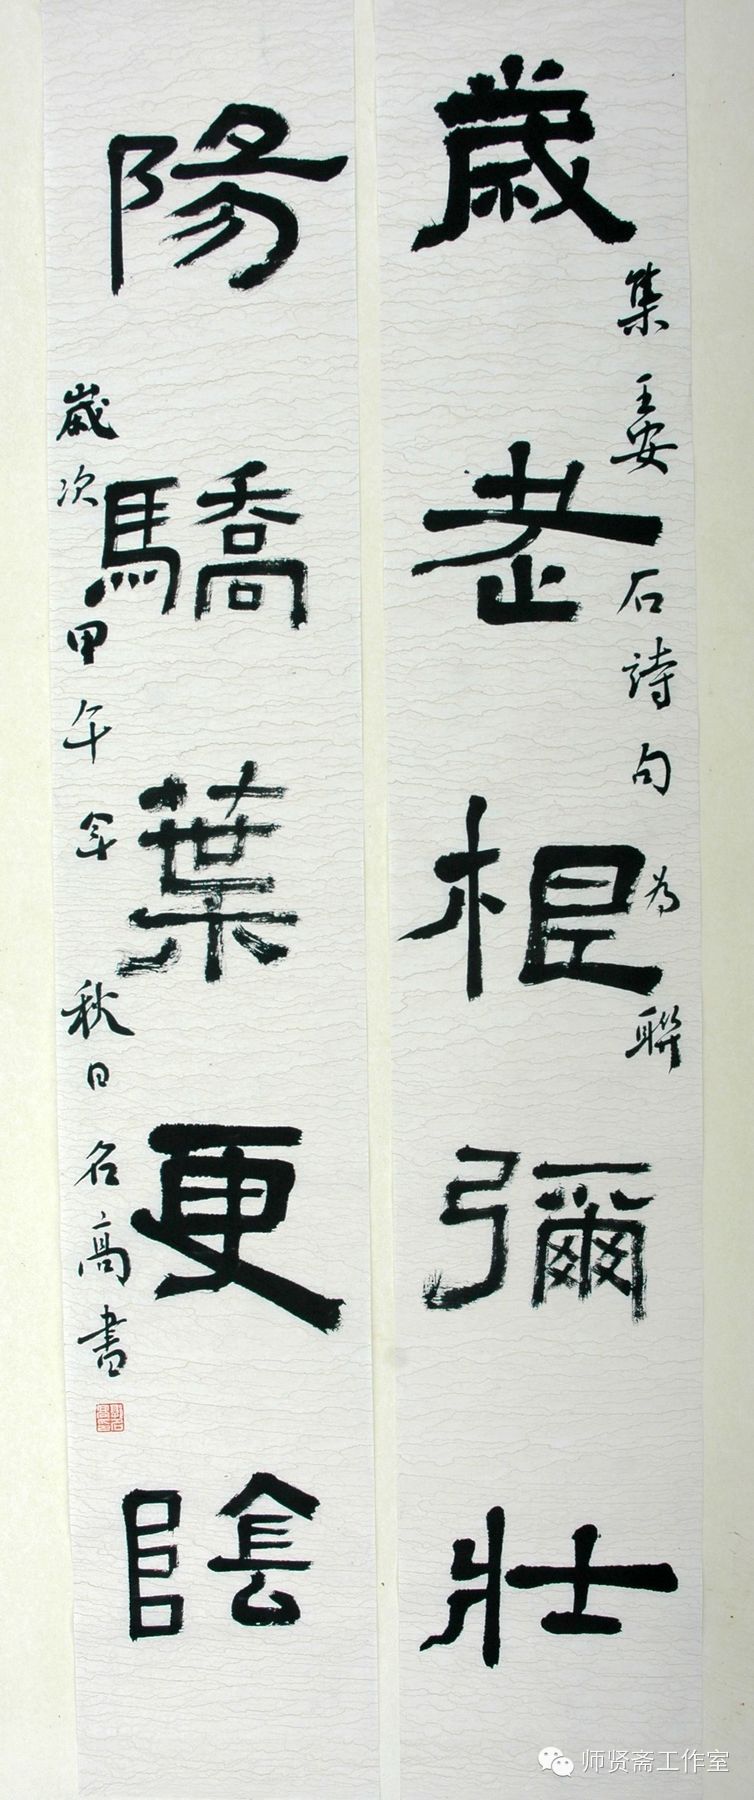 歲老根彌壯
集王安石詩句為聯
陽驕葉更陰
歲次甲午年秋日名高書
师贤斋工作室